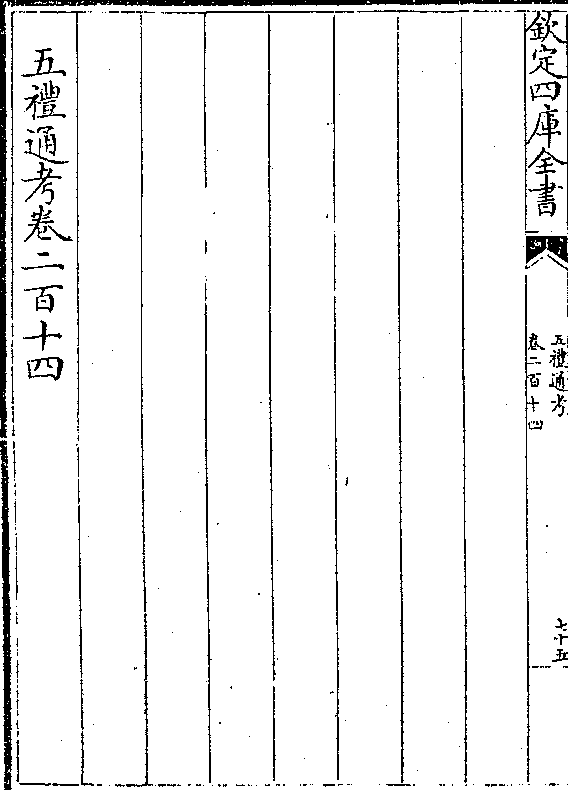 欽定四庫全書
五禮通考
卷二百十四
七十五
五禮通考卷二百十四